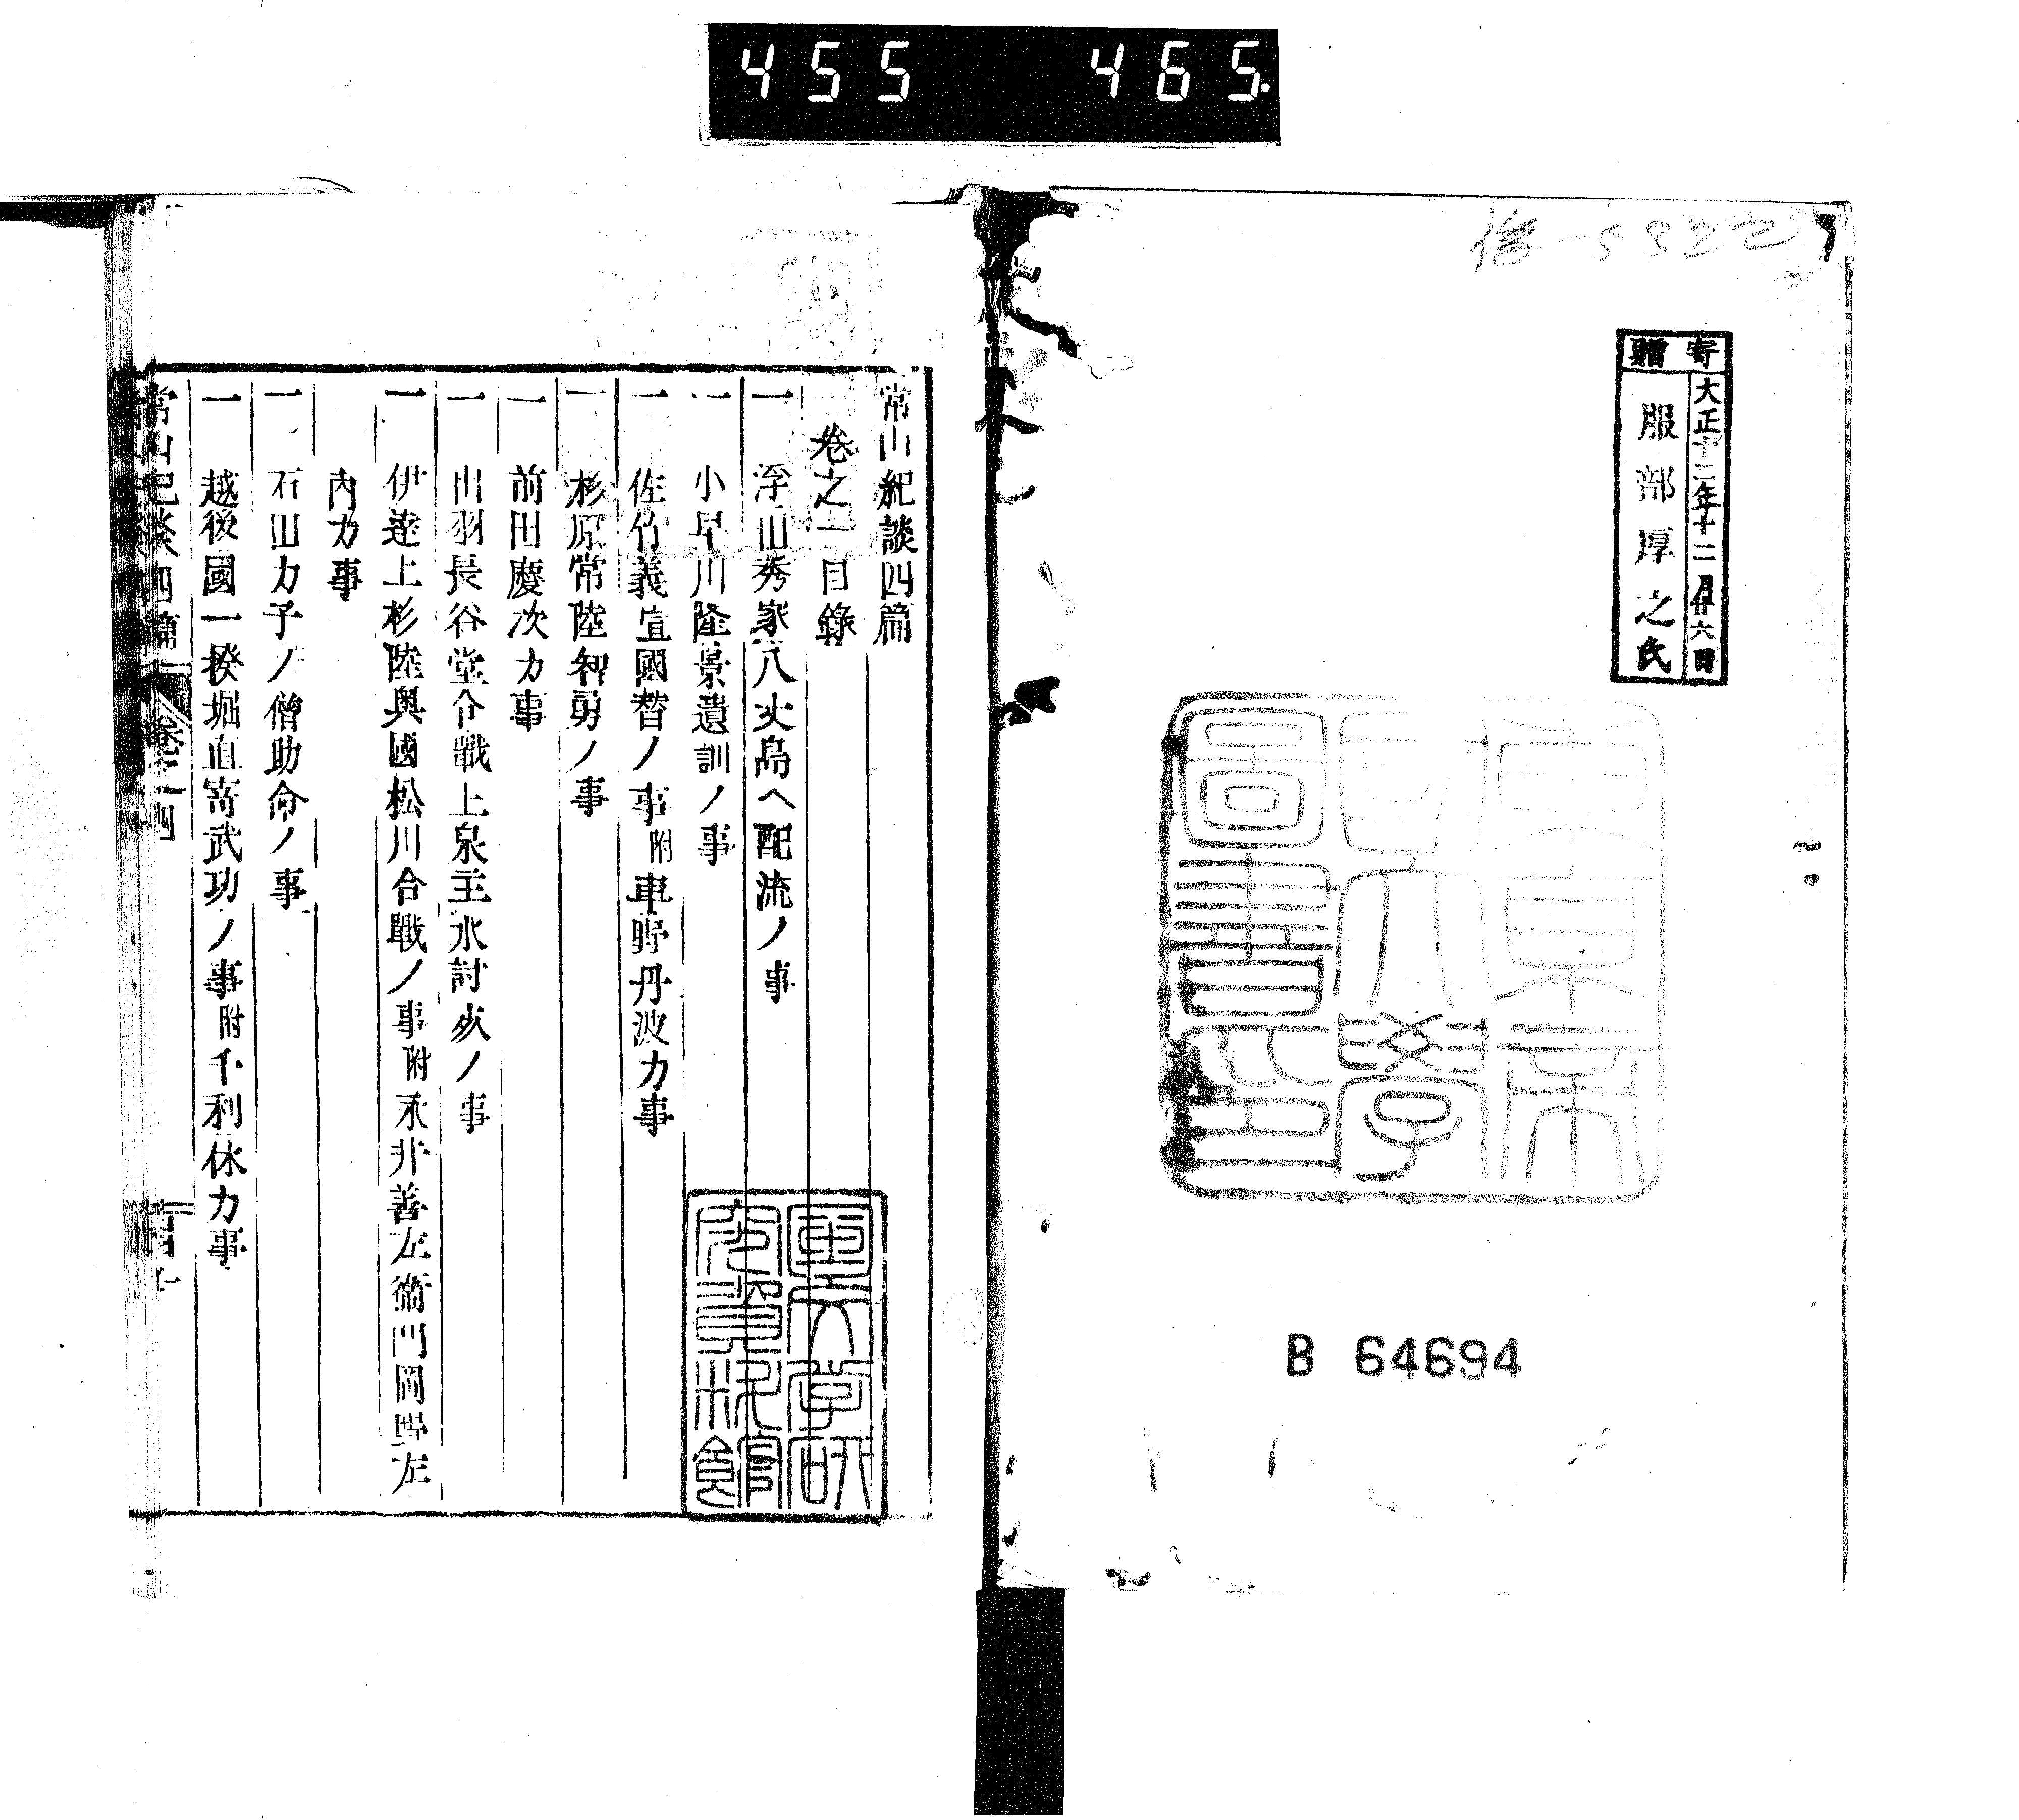 455 465
寄贈
大正十二年十二月廿六日
服部厚之氏
東京帝國大學圖書印
B 64694
常山紀談四篇
卷之一目錄
一 浮田秀家八丈島ヘ配流ノ事
一 小早川隆景遺訓ノ事
一 佐竹義宣國替ノ事附車野丹波カ事
一 杉原常陸智勇ノ事
一 前田慶次カ事
一 出羽長谷堂合戰上泉主水討死ノ事
一 伊達上杉陸奧國松川合戰ノ事附永井善左衞門岡野左
內カ事
一 石田カ子ノ僧助命ノ事
一 越後國一揆堀直寄武功ノ事附千利休カ事
常山紀談四篇 卷之